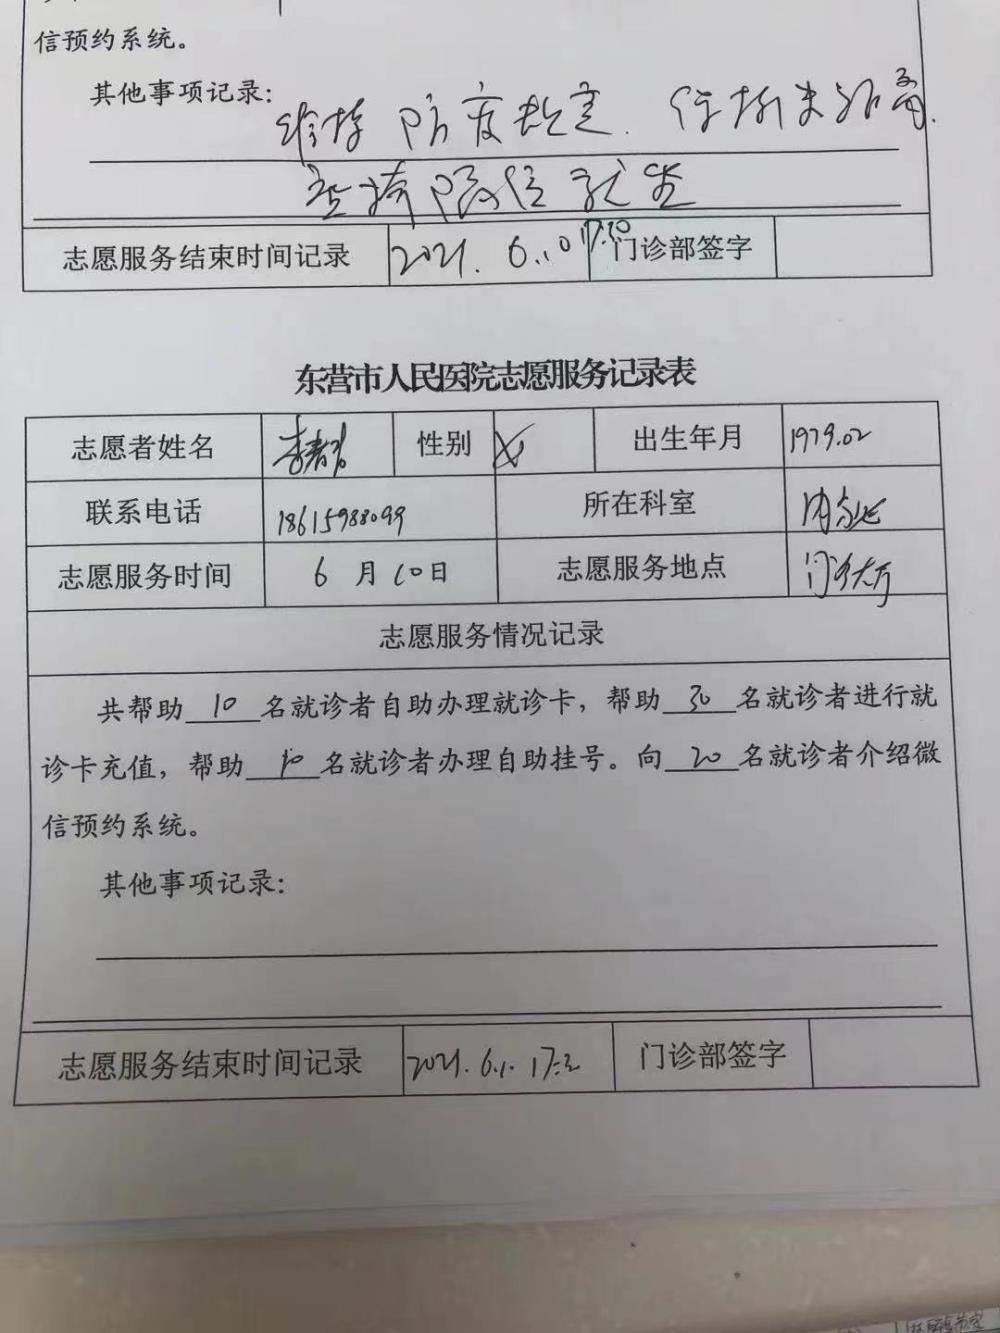 信预约系统。
其他事项记录：
维持 防疫
志愿服务结束时间记录 2021. 6.10 17:30 门诊部签字
东营市人民医院志愿服务记录表
志愿者姓名 李 性别 女 出生年月 1979.02
联系电话 18615988099 所在科室
志愿服务时间 6 月 10 日 志愿服务地点 门诊大厅
志愿服务情况记录
共帮助 10 名就诊者自助办理就诊卡，帮助 30 名就诊者进行就
诊卡充值，帮助 10 名就诊者办理自助挂号。向 20 名就诊者介绍微
信预约系统。
其他事项记录：
志愿服务结束时间记录 2021. 6.1. 门诊部签字